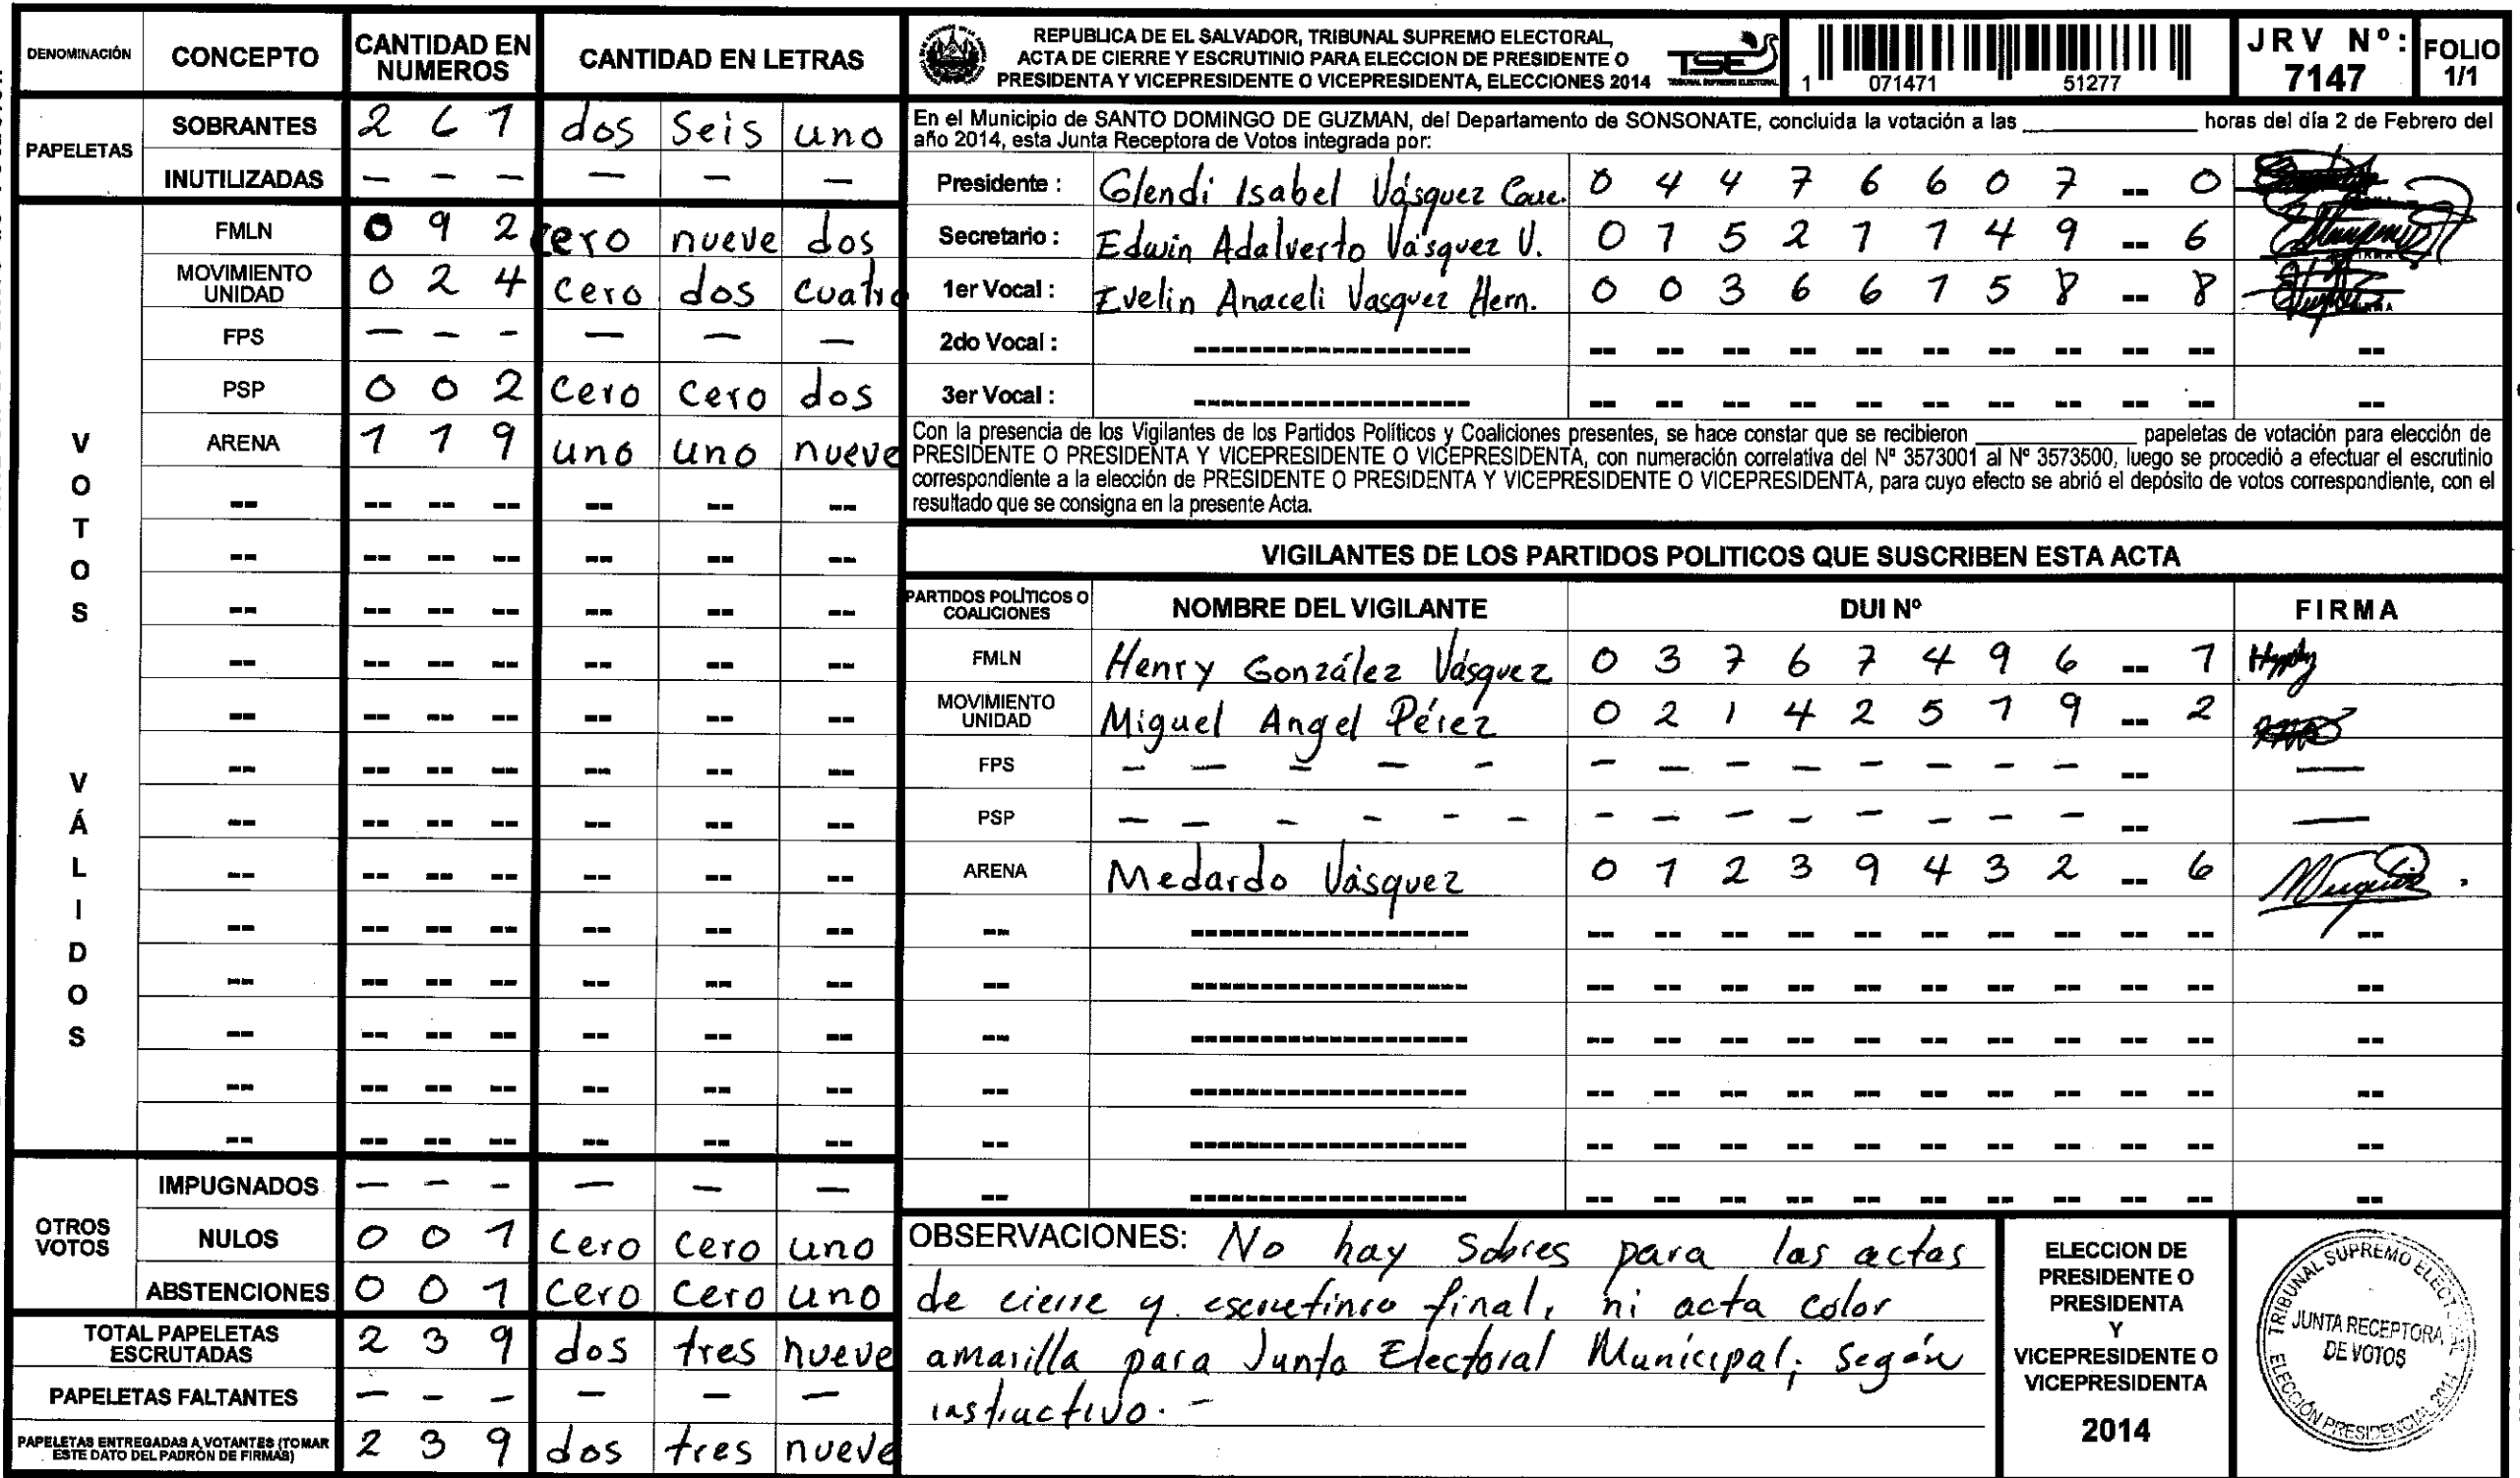 DENOMINACIÓN CONCEPTO CANTIDAD EN NUMEROS CANTIDAD EN LETRAS
PAPELETAS
SOBRANTES 2 6 1 dos Seis uno
INUTILIZADAS — — — — — —
VOTOS VÁLIDOS
FMLN 0 9 2 cero nueve dos
MOVIMIENTO UNIDAD 0 2 4 cero dos cuatro
FPS — — — — — —
PSP 0 0 2 cero cero dos
ARENA 1 1 9 uno uno nueve
OTROS VOTOS
IMPUGNADOS — — — — — —
NULOS 0 0 1 cero cero uno
ABSTENCIONES 0 0 1 cero cero uno
TOTAL PAPELETAS ESCRUTADAS 2 3 9 dos tres nueve
PAPELETAS FALTANTES — — — — — —
PAPELETAS ENTREGADAS A VOTANTES (TOMAR ESTE DATO DEL PADRÓN DE FIRMAS) 2 3 9 dos tres nueve
REPUBLICA DE EL SALVADOR, TRIBUNAL SUPREMO ELECTORAL,
ACTA DE CIERRE Y ESCRUTINIO PARA ELECCION DE PRESIDENTE O
PRESIDENTA Y VICEPRESIDENTE O VICEPRESIDENTA, ELECCIONES 2014
TSE
TRIBUNAL SUPREMO ELECTORAL
1 071471 51277
JRV Nº: 7147
FOLIO 1/1
En el Municipio de SANTO DOMINGO DE GUZMAN, del Departamento de SONSONATE, concluida la votación a las ________ horas del día 2 de Febrero del
año 2014, esta Junta Receptora de Votos integrada por:
Presidente : Glendi Isabel Vásquez 0 4 4 7 6 6 0 7 -- 0
Secretario : Edwin Adalverto Vásquez V. 0 1 5 2 1 1 4 9 -- 6
1er Vocal : Evelin Anaceli Vasquez Hern. 0 0 3 6 6 1 5 8 -- 8
2do Vocal :
3er Vocal :
Con la presencia de los Vigilantes de los Partidos Políticos y Coaliciones presentes, se hace constar que se recibieron ________ papeletas de votación para elección de
PRESIDENTE O PRESIDENTA Y VICEPRESIDENTE O VICEPRESIDENTA, con numeración correlativa del Nº 3573001 al Nº 3573500, luego se procedió a efectuar el escrutinio
correspondiente a la elección de PRESIDENTE O PRESIDENTA Y VICEPRESIDENTE O VICEPRESIDENTA, para cuyo efecto se abrió el depósito de votos correspondiente, con el
resultado que se consigna en la presente Acta.
VIGILANTES DE LOS PARTIDOS POLITICOS QUE SUSCRIBEN ESTA ACTA
PARTIDOS POLÍTICOS O COALICIONES NOMBRE DEL VIGILANTE DUI Nº FIRMA
FMLN Henry González Vásquez 0 3 7 6 7 4 9 6 -- 1
MOVIMIENTO UNIDAD Miguel Angel Pérez 0 2 1 4 2 5 1 9 -- 2
FPS — — — — — — — — — — — — — -- —
PSP — — — — — — — — — — — — — — -- —
ARENA Medardo Vásquez 0 1 2 3 9 4 3 2 -- 6
OBSERVACIONES: No hay Sobres para las actas
de cierre y escrutinio final, ni acta color
amarilla para Junta Electoral Municipal, Según
instructivo. -
ELECCION DE
PRESIDENTE O
PRESIDENTA
Y
VICEPRESIDENTE O
VICEPRESIDENTA
2014
TRIBUNAL SUPREMO
JUNTA RECEPTORA
DE VOTOS
ELECCIÓN PRESIDENCIAL 2014